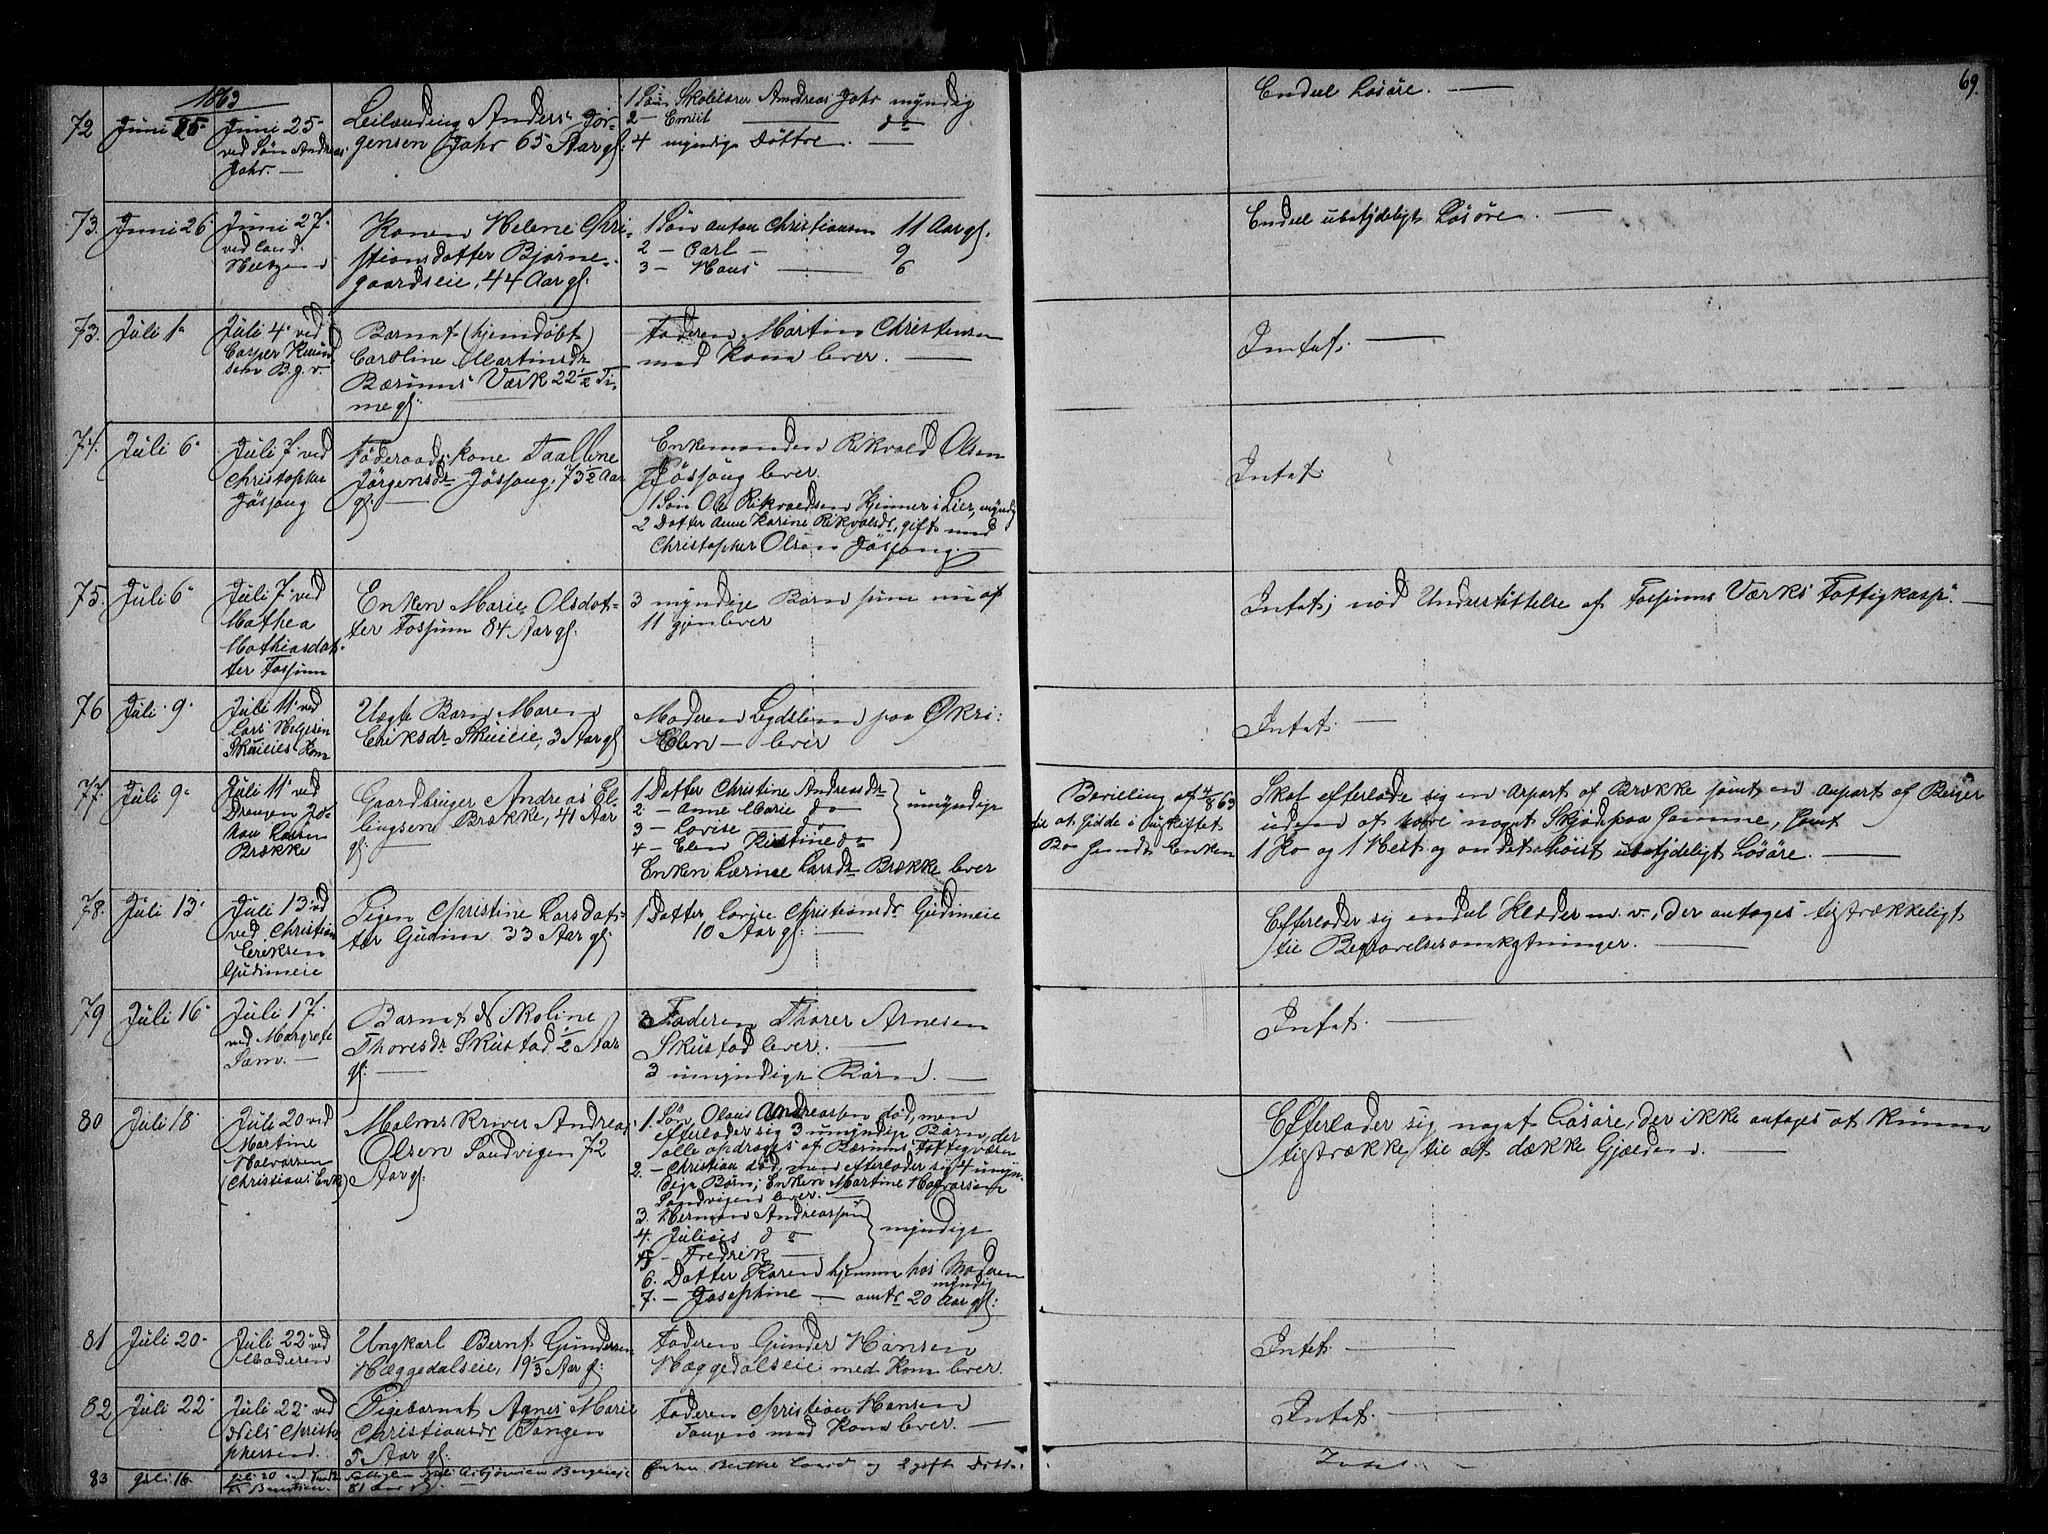 69.
1863
72
Juni 25
Juni 25
ved Søn Andreas
Jahr. —
Leilænding Anders Jør-
gensen Jahr 65 Aar gl:
1 Søn Skolelærer Andreas Jahr myndig
2 — Emil — do
4 myndige Døttre. —
Endeel Løsøre. —
73.
Juni 26
Juni 27
ved Land.
Konen Helene Chri-
stiansdatter Bjørne-
gaardseie, 44 Aar gl.
1 Søn Anton Christiansen 11 Aar gl.
2 — Carl — 9
3 — Hans — 6
Endeel ubetydeligt Løsøre. —
73.
Juli 1
Juli 4 ved
Casper
B. g. v.
Barnet (hjemdøbt)
Caroline Martinsdr
Bærums Værk 22 1/2 Ti-
me gl:
Faderen Martin Christensen
med Kone lever. —
Intet. —
74.
Juli 6
Juli 7 ved
Christopher
Jøssong
Føderaadskone Taallene
Jørgensdr Jøssong, 73 1/2 Aar
gl: —
Enkemanden Rikvald Olsen
Jøssong lever
1 Søn Ole Rikvaldsen Hjemmer i Lier, myndig
2 Datter Anne Karine Rikvalsdr, gift med
Christopher Olsen Jøssong. —
Intet.
75.
Juli 6
Juli 7 ved
Mathea
Mathiasdat-
ter Fossum
Enken Marie Olsdat-
ter Fossum 84 Aar gl.
3 myndige Børn som nu af
11 gjenlever
Intet; nød Understøttelse af Fossums Værks Fattigkasse. —
76
Juli 9
Juli 11 ved
Lars Helgesen
Skuieies Kone
Uægte Barn Maren
Eriksdr Skuieie, 3 Aar gl
Moderen Logdslem paa Økri:
Elen — lever
Intet. —
77.
Juli 9
Juli 11 ved
Drengen Jo-
han Larsen
Brække
Gaardbruger Andreas El-
lingsen Brække, 41 Aar
gl: —
1 Datter Christine Andreasdr
2 — Anne Marie do
3 — Lovise do
4 — Elen Kirstine do
umyndige
Enken Lærine Larsdr Brække lever
Bevilling af 4/8 63
til at sidde i uskiftet
Bo sendt Enken
Skal efterlade sig en Aspart af Brække samt en Aspart af Berger
uden at have noget Skjøde paa samme, samt
1 Ko og 1 Hest og andet høist ubetydeligt Løsøre. —
78.
Juli 13
Juli 13 ved
ved Christian
Eriksen
Gudimeie
Pigen Christine Larsdat-
ter Gudim 33 Aar gl.
1 Datter Lovise Christiansdr Gudimeie
10 Aar gl: —
Efterlader sig endel Klæder m. v., der antages tilstrækkeligt
til Begravelsesomkostninger. —
79
Juli 16
Juli 17.
ved Margrete
Sam. —
Barnet Nikoline
Thoresdr Skustad 1/2 Aar
gl: —
Faderen Thorer Arnesen
Skustad lever. —
3 umyndige Børn. —
Intet. —
80
Juli 18
Juli 20 ved
Martine
Halvorsen
(Christians Enke)
Malmskriver Andreas
Olsen Sandvigen 72
Aar gl.
1. Søn Olaus Andreassen død, men
efterlader sig 3 umyndige Børn, der
alle opdrages af Bærums Fattigvæsen
2. — Christian død, men efterlader sig 4 umyn-
dige Børn; Enken Martine Halvorsen
Sandvigen lever. —
3. Herman Andreassen
4. Julius do
5 — Fredrik —
myndige
6. Datter Karen hjemme hos Moderen
myndig
7. — Josephine — omtr 20 Aar gl:
Efterlader sig noget Løsøre, der ikke antages at kunne
tilstrække til at dække Gjælden. —
81
Juli 20
Juli 22 ved
Moderen
Ungkarl Bernt Gundersen
Hæggedalseie, 19 1/3 Aar gl:
Faderen Gunder Hansen
Hæggedalseie med Kone lever.
Intet. —
82
Juli 22
Juli 22 ved
Nils Christo-
phersen.
Pigebarnet Agnes Marie
Christiansdr Tangen
5 Aar gl.
Faderen Christian Hansen
Tangen med Kone lever. —
Intet. —
83
Juli 16
Juli 20 ved
81 Aar gl.
Enken Berthe Larsd og 2 gifte Døttre
Intet. —